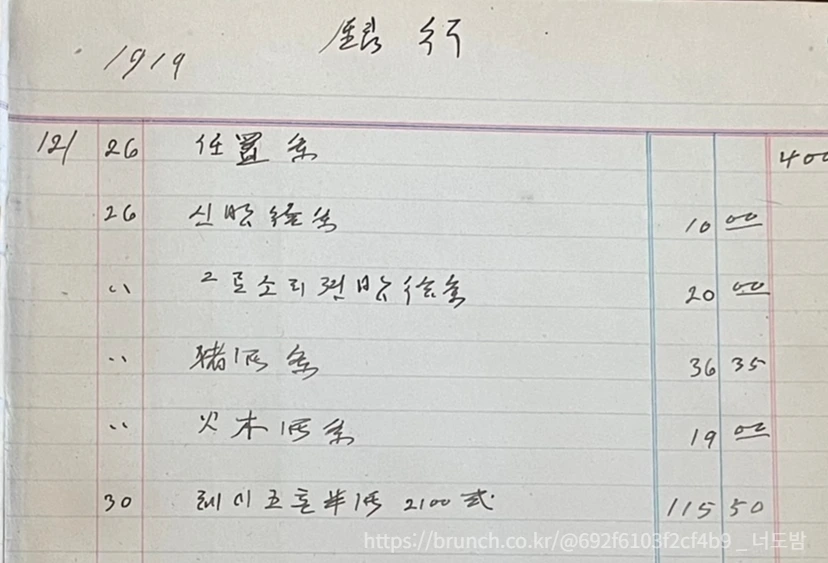 銀行
1919
12/ 26 任置条 400
26 신문 条 10 00
〃 그로소리 条 20 00
〃 猪価条 36 35
〃 火木価条 19 00
30 레이 価 2100 式 115 50
https://brunch.co.kr/@692f6103f2cf4b9 _ 너도밤